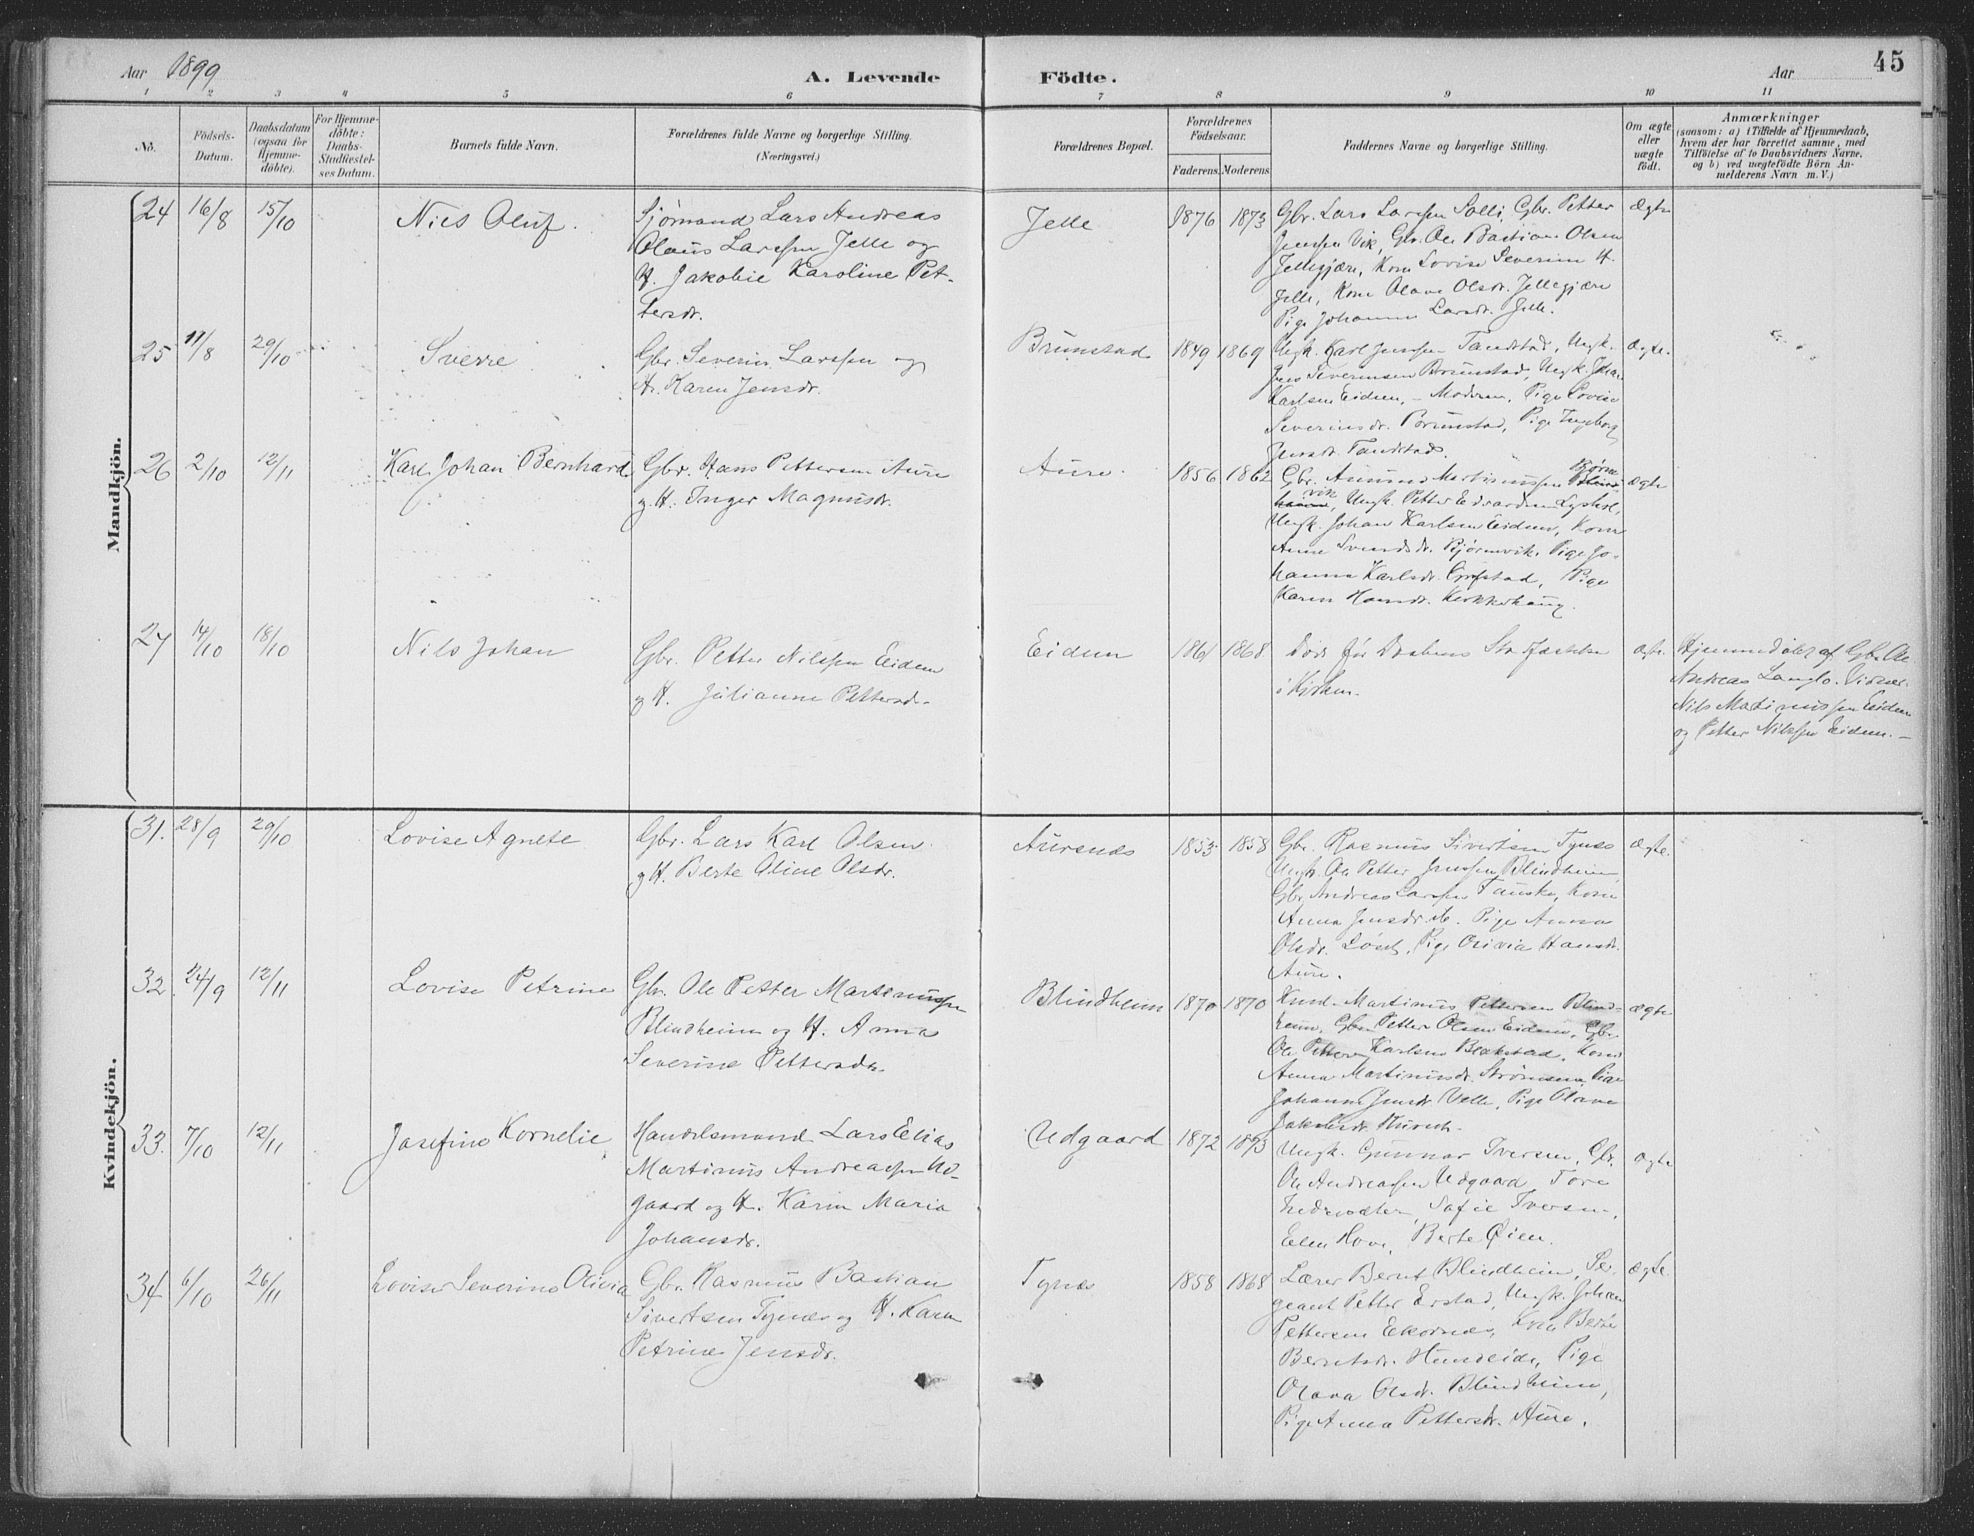 Aar 1899
A. Levende
Födte.
Aar
45
1 2 3 4 5 6 7 8 9 10 11
No.
Födsels-
Datum.
Daabsdatum
(ogsaa for
Hjemme-
döbte).
For Hjemme-
döbte:
Daabs-
Stadfæstel-
ses Datum.
Barnets fulde Navn.
Forældrenes fulde Navne og borgerlige Stilling.
(Næringsvei.)
Forældrenes Bopæl.
Forældrenes
Födselsaar.
Faderens. Moderens.
Faddernes Navne og borgerlige Stilling.
Om ægte
eller
uægte
födt.
Anmærkninger
(saasom: a) i Tilfælde af Hjemmedaab,
hvem der har forrettet samme, med
Tilföielse af to Daabsvidners Navne,
og b) ved uægtefödte Börn An-
melderens Navn m. V.)
Mandkjön.
24 16/8 15/10
Niels Oluf.
Sjømand Lars Andreas
Olaus Larssen Jelle og
H. Jakobie Karoline Pet-
tersdr.
Jelle
1876 1873
Gbr. Lars Larssen Solli, Gbr. Petter
Jenssen Vik, Gbr. Ole Bastian Olsen
Jellegjære, Kone Lovise Severine H.
Jelle, Kone Olave Olsdr. Jellegjære
Pige Johanne Larsdr. Jelle.
Ægte
25 11/8 29/10
Sverre
Gbr. Severin Larssen og
H. Karen Jensdr.
Brunstad
1849 1869
Ungk. Karl Jenssen Tandstad, Ungk.
Jens Severinsen Brunstad, Ungk. Johan
Karlsen Eidem, - Moderen, Pige Lovise
Severinsdr. Brunstad, Pige Ingeborg
Jensdr. Tandstad.
Ægte.
26 2/10 12/11
Karl Johan Bernhard
Gbr. Hans Pettersen Aure
og H. Inger Magnusdr.
Aure.
1856 1862
Gbr. Amund Martinussen Bjørne-
vik, Ungk. Petter Edvardsen
Ungk. Johan Karlsen Eidem, Kone
Anne Svendsdr. Bjørnevik, Pige Jo-
hanna Karlsdr. Pige
Karen Hansdr. Kirkehaug.
ægte
27 14/10 18/10
Nils Johan
Gbr. Petter Nilssen Eidem
og H. Julianne Pettersdr.
Eidem
1861 1868
Død før Daabens Stadfæstelse
i Kirken.
ægte
Hjemmedøbt af Gbr. Ole
Andreas Langlo. Vidner:
Nils Martinussen Eidem
og Petter Nilssen Eidem. -
Kvindekjön.
31. 28/9 29/10
Lovise Agnete
Gbr. Lars Karl Olsen
og H. Berte Oline Olsdr.
Aursnes
1853 1858
Gbr. Rasmus Sivertsen Tynes
Ungk. Ole Petter Jenssen Blindheim
Gbr. Andreas Larssen Tauske, Kone
Anna Jensdr. Pige Anna
Olsdr. Pige Olivia Hansdr.
Aure.
Ægte.
32. 24/9 12/11
Lovise Petrine
Gbr. Ole Petter Martinussen
Blindheim og H. Anna
Severine Pettersdr.
Blindheim
1870 1870
Martinus Pettersen Blind-
heim, Gbr. Petter Olsen Eidem, Gbr.
Ole Petter Karlsen Blakstad, Kone
Anna Martinusdr. Pige
Johanne Jensdr. Velle, Pige Olave
Jakobsdr.
ægte
33. 7/10 12/11
Josefine Kornelie
Handelsmand Lars Elias
Martinus Andreassen Ud-
gaard og H. Karin Maria
Johansdr.
Udgaard
1872 1873
Ungk. Gunnar Iversen, Gbr.
Ole Andreassen Udgaard, Tore
Sofie Iversen,
Elen Hove, Berte Øien.
ægte
34. 6/10 26/11
Lovise Severine Olivia
Gbr. Rasmus Bastian
Sivertsen Tynes og H. Karen
Petrine Jensdr.
Tynes
1858 1868
Lærer Bernt Blindheim, Ser-
geant Petter Erstad, Ungk. Johan
Pettersen Ekornes, Kone Berte
Berntsdr. Hundeide, Pige
Olava Olsdr. Blindheim,
Pige Anna Pettersdr. Aure.
Ægte.